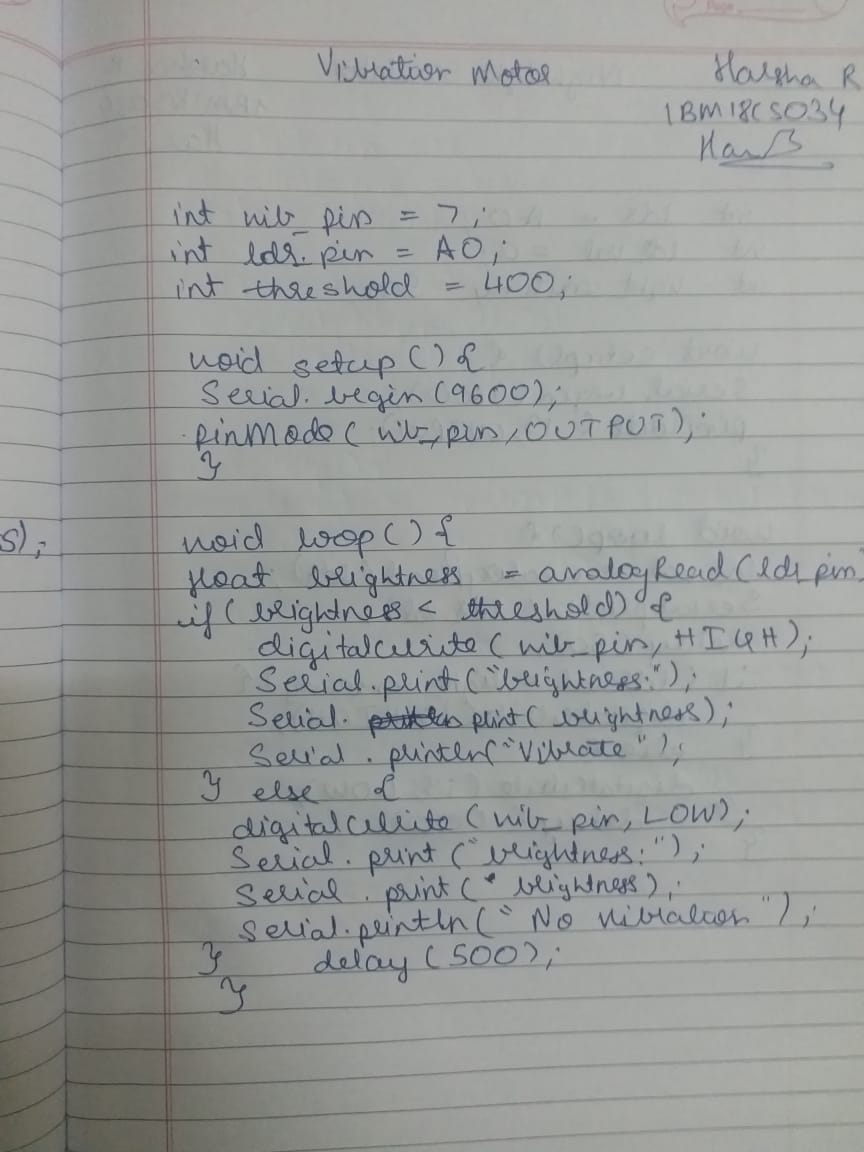 Vibration Motor
Harsha R
1BM18CS034
int vib_pin = 7;
int ldr_pin = A0;
int threshold = 400;
void setup() {
Serial.begin(9600);
pinMode(vib_pin, OUTPUT);
}
s);
void loop() {
float brightness = analogRead(ldr_pin
if(brightness < threshold) {
digitalWrite(vib_pin, HIGH);
Serial.print("brightness:");
Serial. print(brightness);
Serial.println("Vibrate");
} else {
digitalWrite(vib_pin, LOW);
Serial.print("brightness:");
Serial.print(brightness);
Serial.println("No vibration");
} delay(500);
}